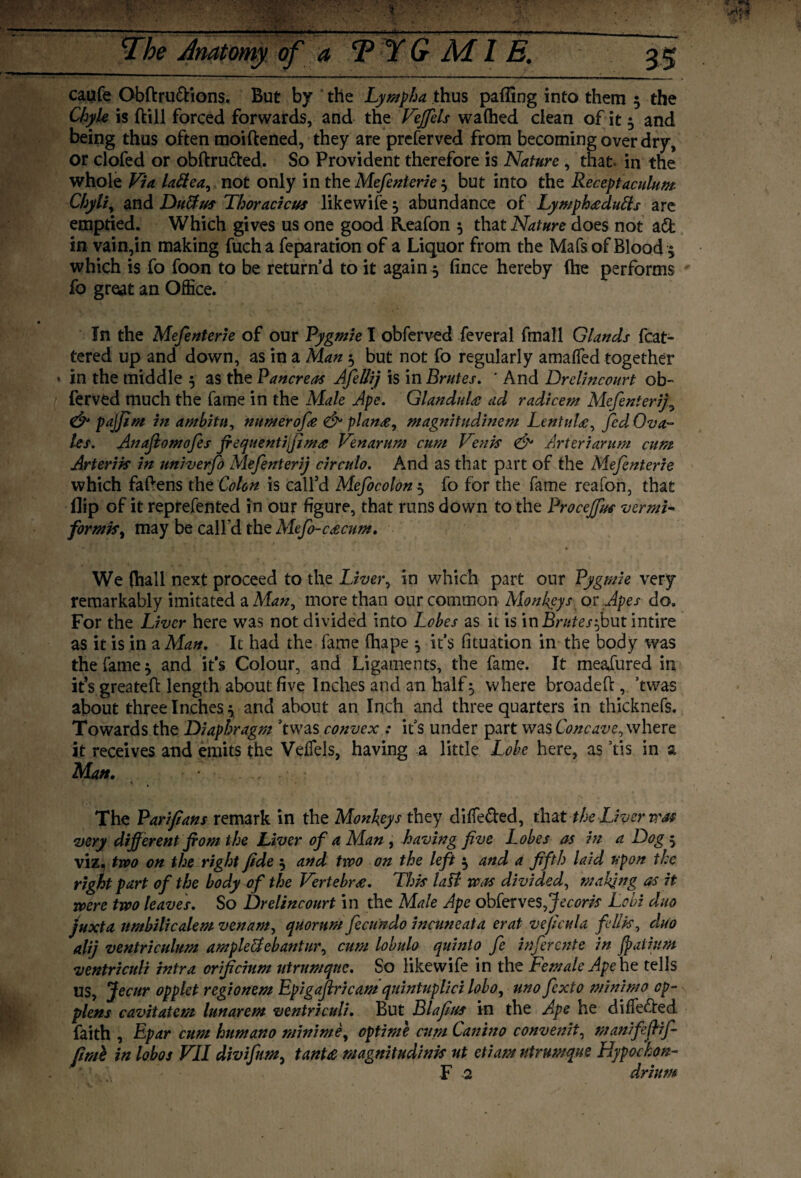 The Anatomy of a PYGMIE. 35
cauſe Obſtructions. But by the Lympha thus paſſing into them ; the
Chyle is ſtill forced forwards, and the Veſſels waſhed clean of it ; and
being thus often moiſtened, they are preſerved from becoming over dry,
or cloſed or obſtructed. So Provident therefore is Nature , that in the
whole Via lactea, not only in the Meſenterie ; but into the Receptaculum
Chyli, and Ductus Thoracicus likewiſe ; abundance of Lymphæducts are
emptied. Which gives us one good Reaſon ; that Nature does not act
in vain,in making ſuch a ſeparation of a Liquor from the Maſs of Blood ;
which is ſo ſoon to be return'd to it again ; ſince hereby ſhe performs
ſo great an Office.
In the Meſenterie of our Pygmie I obſerved ſeveral ſmall Glands ſcat-
tered up and down, as in a Man ; but not ſo regularly amaſſed together
in the middle ; as the Pancreas Aſellij is in Brutes. And Drelincourt ob-
ſerved much the ſame in the Male Ape. Glandulæ ad radicem Meſenterij,
& paſſim in ambitu, numeroſæ & planæ, magnitudinem Lentulæ, ſed Ova-
les. Anaſtomoſes frequentiſſimæ Venarum cum Venis & Arteriarum cum
Arteriis in univerſo Meſenterij circulo. And as that part of the Meſenterie
which faſtens the Colon is call'd Meſocolon ; ſo for the ſame reaſon, that
ſlip of it repreſented in our figure, that runs down to the Proceſſus vermi-
formis, may be call'd the Meſo-cæcum.
We ſhall next proceed to the Liver, in which part our Pygmie very
remarkably imitated a Man, more than our common Monkeys or Apes do.
For the Liver here was not divided into Lobes as it is in Brutes;but intire
as it is in a Man. It had the ſame ſhape ; it's ſituation in the body was
the ſame ; and it's Colour, and Ligaments, the ſame. It meaſured in
it's greateſt length about five Inches and an half ; where broadeſt , 'twas
about three Inches ; and about an Inch and three quarters in thickneſs.
Towards the Diaphragm 'twas convex : it's under part was Concave, where
it receives and emits the Veſſels, having a little Lobe here, as 'tis in a
Man.
The Pariſians remark in the Monkeys they diſſected, that the Liver was
very different from the Liver of a Man , having five Lobes as in a Dog ;
viz. two on the right ſide ; and two on the left ; and a fifth laid upon the
right part of the body of the Vertebræ. This laſt was divided, making as it
were two leaves. So Drelincourt in the Male Ape obſerves, Jecoris Lobi duo
juxta umbilicalem venam, quorum ſecundo incuneata erat veſicula fellis, duo
alij ventriculum amplectebantur, cum lobulo quinto ſe inſerente in ſpatium
ventriculi intra orificium utrumque. So likewiſe in the Female Ape he tells
us, Jecur opplet regionem Epigaſtricam quintuplici lobo, uno ſexto minimo op-
plens cavitatem lunarem ventriculi. But Blaſius in the Ape he diſſected
ſaith , Epar cum humano minimè, optimè cum Canino convenit, manifeſtiſ-
ſimè in lobos VII diviſum, tantæ magnitudinis ut etiam utrumque Hypochon-
F 2 drium